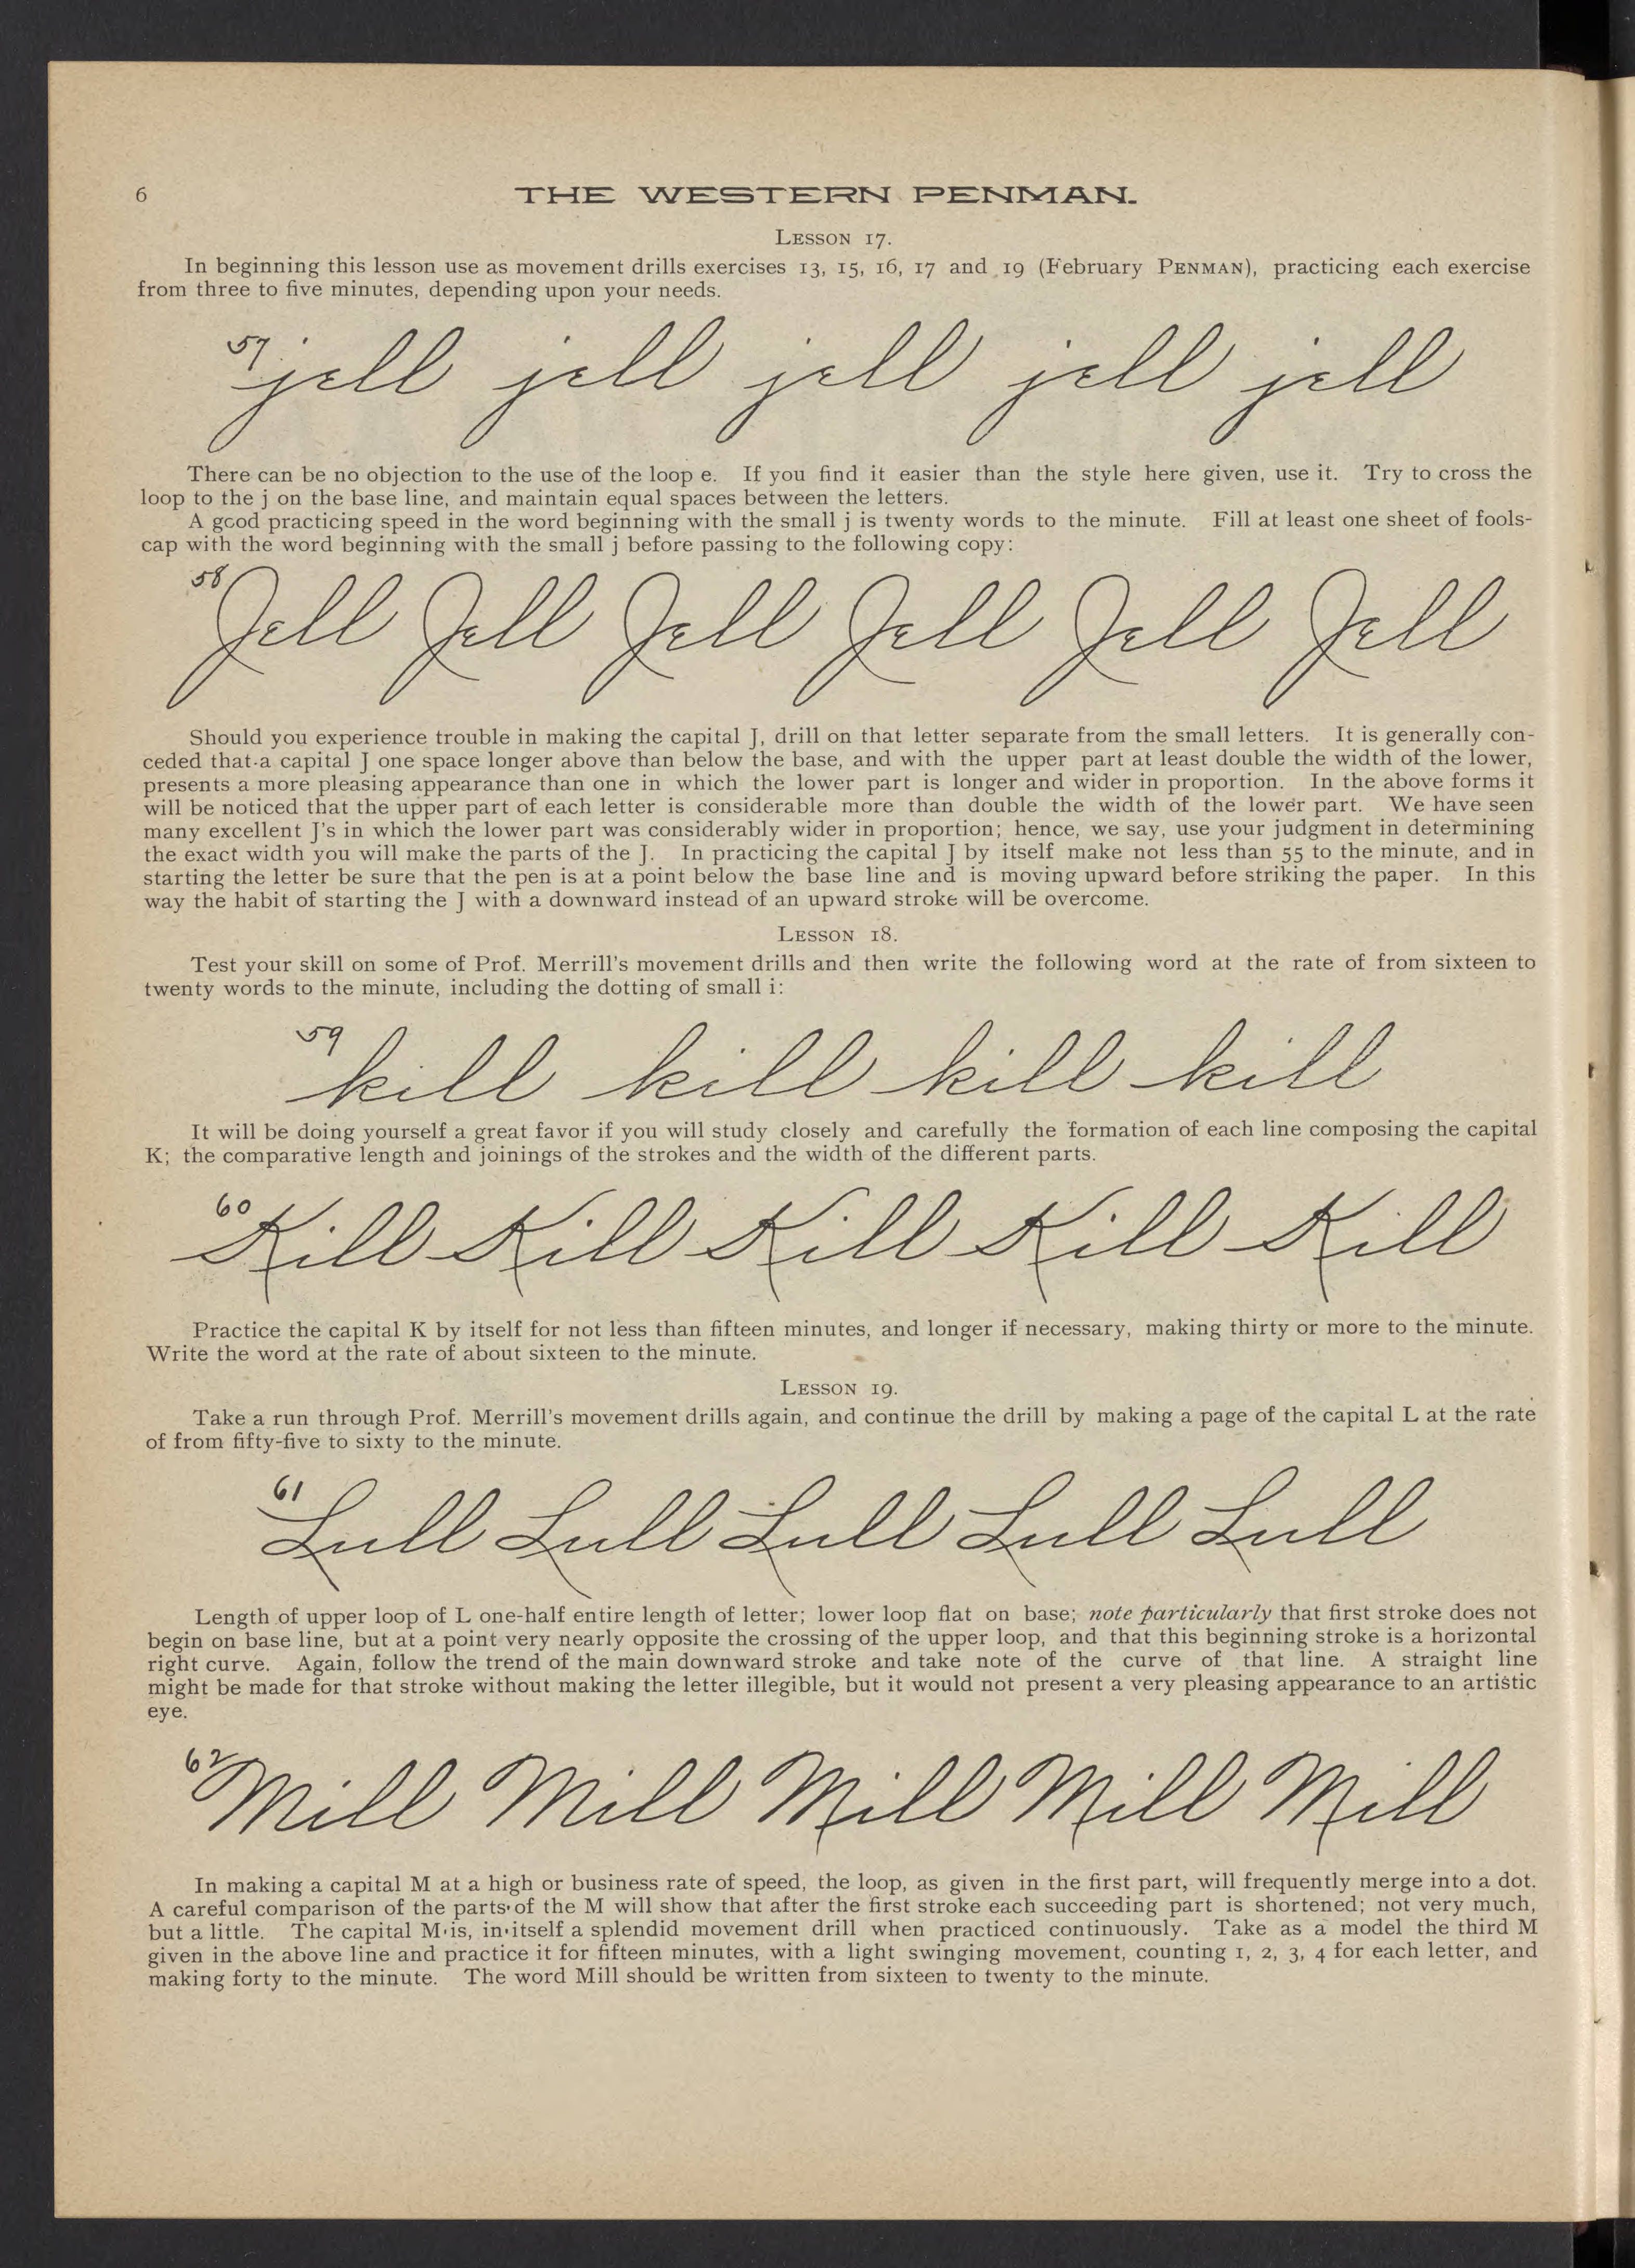 6
THE WESTERN PENMAN.
LESSON 17.
In beginning this lesson use as movement drills exercises 13, 15, 16, 17 and 19 (February PENMAN), practicing each exercise
from three to five minutes, depending upon your needs.
57 jell jell jell jell jell
There can be no objection to the use of the loop e. If you find it easier than the style here given, use it. Try to cross the
loop to the j on the base line, and maintain equal spaces between the letters.
A good practicing speed in the word beginning with the small j is twenty words to the minute. Fill at least one sheet of fools-
cap with the word beginning with the small j before passing to the following copy:
58 Jell Jell Jell Jell Jell Jell
Should you experience trouble in making the capital J, drill on that letter separate from the small letters. It is generally con-
ceded that a capital J one space longer above than below the base, and with the upper part at least double the width of the lower,
presents a more pleasing appearance than one in which the lower part is longer and wider in proportion. In the above forms it
will be noticed that the upper part of each letter is considerable more than double the width of the lower part. We have seen
many excellent J's in which the lower part was considerably wider in proportion; hence, we say, use your judgment in determining
the exact width you will make the parts of the J. In practicing the capital J by itself make not less than 55 to the minute, and in
starting the letter be sure that the pen is at a point below the base line and is moving upward before striking the paper. In this
way the habit of starting the J with a downward instead of an upward stroke will be overcome.
LESSON 18.
Test your skill on some of Prof. Merrill's movement drills and then write the following word at the rate of from sixteen to
twenty words to the minute, including the dotting of small i:
59 kill kill kill kill
It will be doing yourself a great favor if you will study closely and carefully the formation of each line composing the capital
K; the comparative length and joinings of the strokes and the width of the different parts.
60 Kill Kill Kill Kill Kill
Practice the capital K by itself for not less than fifteen minutes, and longer if necessary, making thirty or more to the minute.
Write the word at the rate of about sixteen to the minute.
LESSON 19.
Take a run through Prof. Merrill's movement drills again, and continue the drill by making a page of the capital L at the rate
of from fifty-five to sixty to the minute.
61 Lull Lull Lull Lull Lull
Length of upper loop of L one-half entire length of letter; lower loop flat on base; note particularly that first stroke does not
begin on base line, but at a point very nearly opposite the crossing of the upper loop, and that this beginning stroke is a horizontal
right curve. Again, follow the trend of the main downward stroke and take note of the curve of that line. A straight line
might be made for that stroke without making the letter illegible, but it would not present a very pleasing appearance to an artistic
eye.
62 Mill Mill Mill Mill Mill
In making a capital M at a high or business rate of speed, the loop, as given in the first part, will frequently merge into a dot.
A careful comparison of the parts of the M will show that after the first stroke each succeeding part is shortened; not very much,
but a little. The capital M is, in itself a splendid movement drill when practiced continuously. Take as a model the third M
given in the above line and practice it for fifteen minutes, with a light swinging movement, counting 1, 2, 3, 4 for each letter, and
making forty to the minute. The word Mill should be written from sixteen to twenty to the minute.